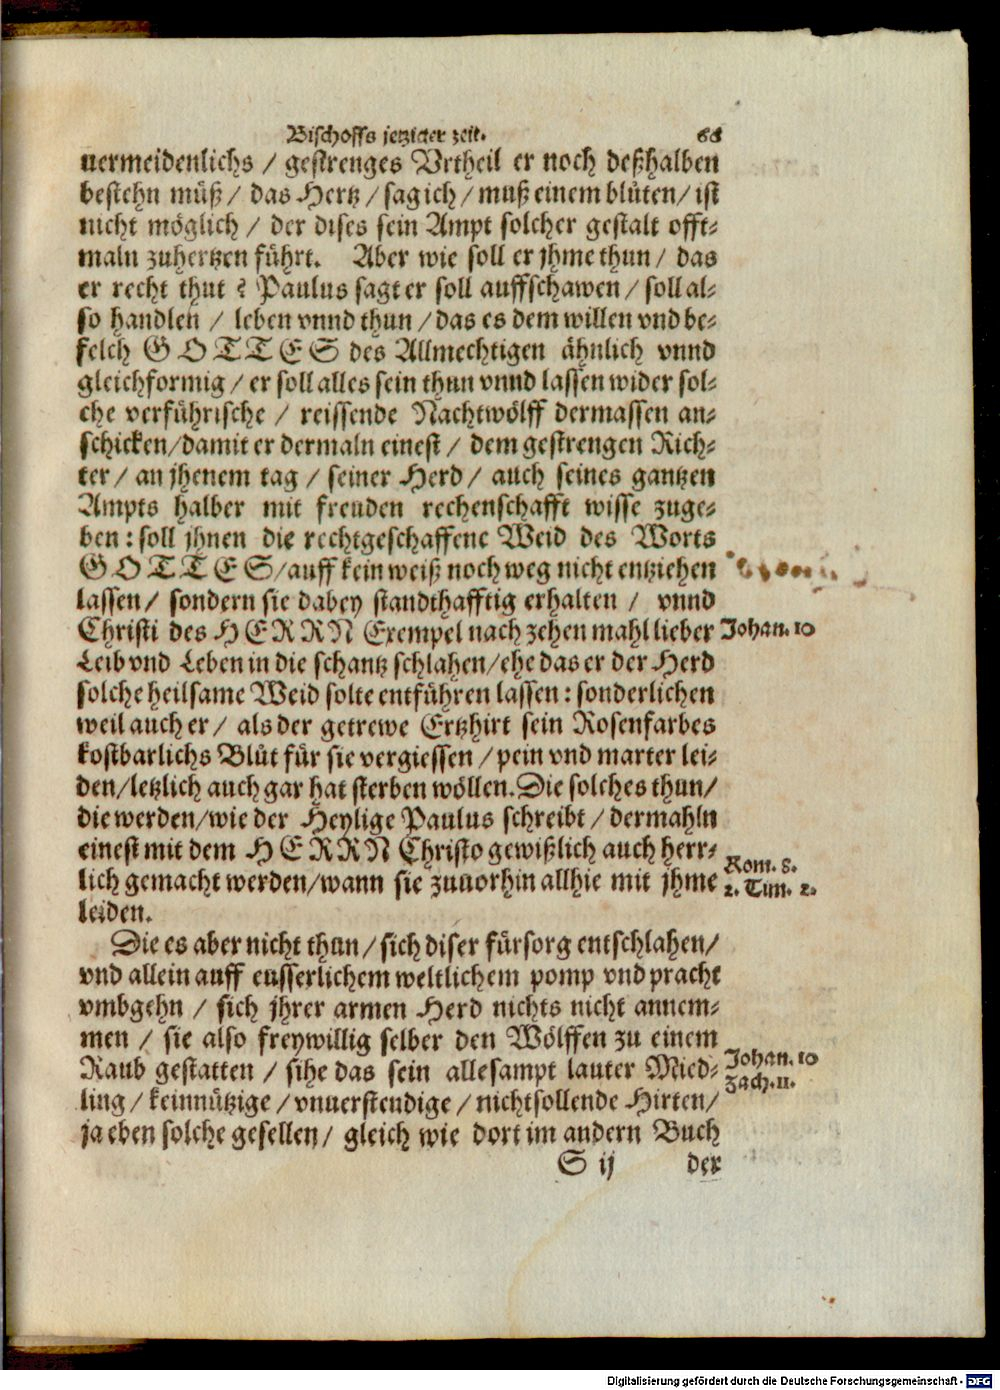 Bischoffs jetziger zeit. 68
uermeidenlichs / gestrenges Vrtheil er noch deßhalben
bestehn müß / das Hertz / sag ich / muß einem blüten / ist
nicht möglich / der dises sein Ampt solcher gestalt offt-
maln zuhertzen führt. Aber wie soll er jhme thun / das
er recht thut? Paulus sagt er soll auffschawen / soll al-
so handlen / leben vnnd thun / das es dem willen vnd be-
felch GOTTES des Allmechtigen ähnlich vnnd
gleichformig / er soll alles sein thun vnnd lassen wider sol-
che verführische / reissende Nachtwölff dermassen an-
schicken / damit er dermaln einest / dem gestrengen Rich-
ter / an jhenem tag / seiner Herd / auch seines gantzen
Ampts halber mit freuden rechenschafft wisse zuge-
ben: soll jhnen die rechtgeschaffene Weid des Worts
GOTTES / auff kein weiß noch weg nicht entziehen
lassen / sondern sie dabey standthafftig erhalten / vnnd
Christi des HERRN Exempel nach zehen mahl lieber Johan. 10
Leib vnd Leben in die schantz schlahen / ehe das er der Herd
solche heilsame Weid solte entführen lassen: sonderlichen
weil auch er / als der getrewe Ertzhirt sein Rosenfarbes
kostbarlichs Blüt für sie vergiessen / pein vnd marter lei-
den / letzlich auch gar hat sterben wöllen. Die solches thun /
die werden / wie der Heylige Paulus schreibt / dermahln
einest mit dem HERRN Christo gewißlich auch herr-
lich gemacht werden / wann sie zuuorhin allhie mit jhme
leiden.
Rom. 8.
2. Tim. 2.
Die es aber nicht thun / sich diser fürsorg entschlahen /
vnd allein auff eusserlichem weltlichem pomp vnd pracht
vmbgehn / sich jhrer armen Herd nichts nicht annem-
men / sie also freywillig selber den Wölffen zu einem
Raub gestatten / sihe das sein allesampt lauter Mied-
ling / keinnützige / vnuerstendige / nichtsollende Hirten /
ja eben solche gesellen / gleich wie dort im andern Buch
Johan. 10
Zach. 11.
S ij der
Digitalisierung gefördert durch die Deutsche Forschungsgemeinschaft - DFG